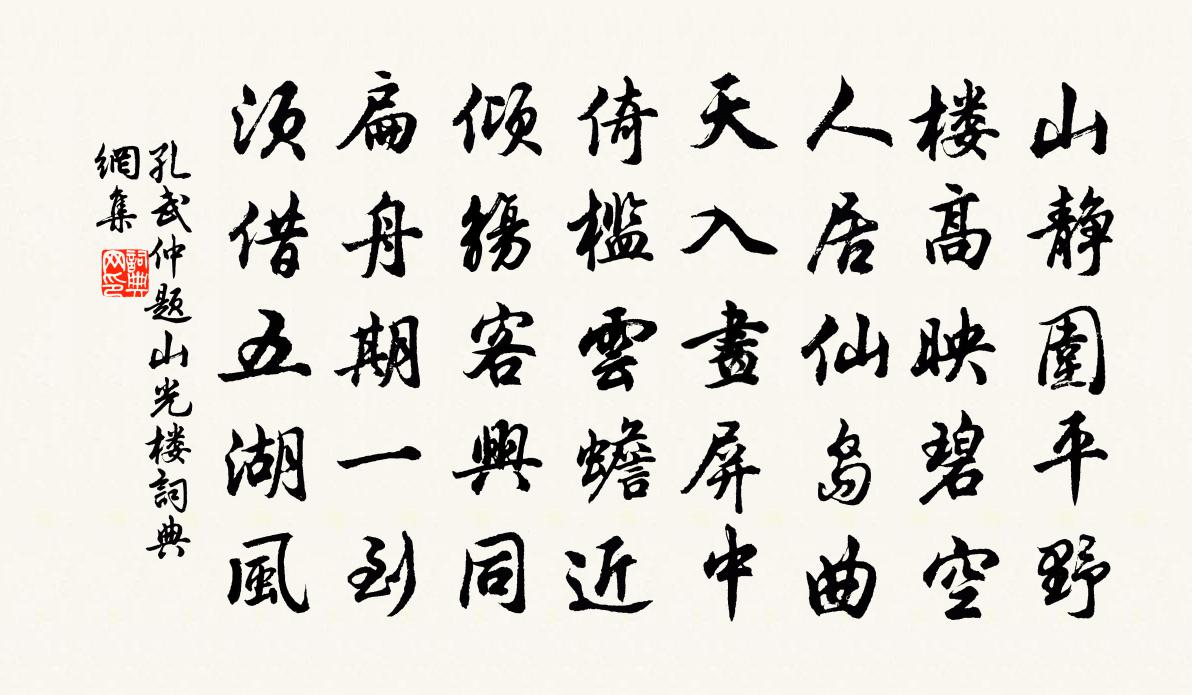 山静圍平野
楼高映碧空
人居仙島曲
天入畫屏中
倚檻雲蟾近
傾觴客興同
扁舟期一到
須借五湖風
孔武仲题山光楼詞典
網集
詞典
网印